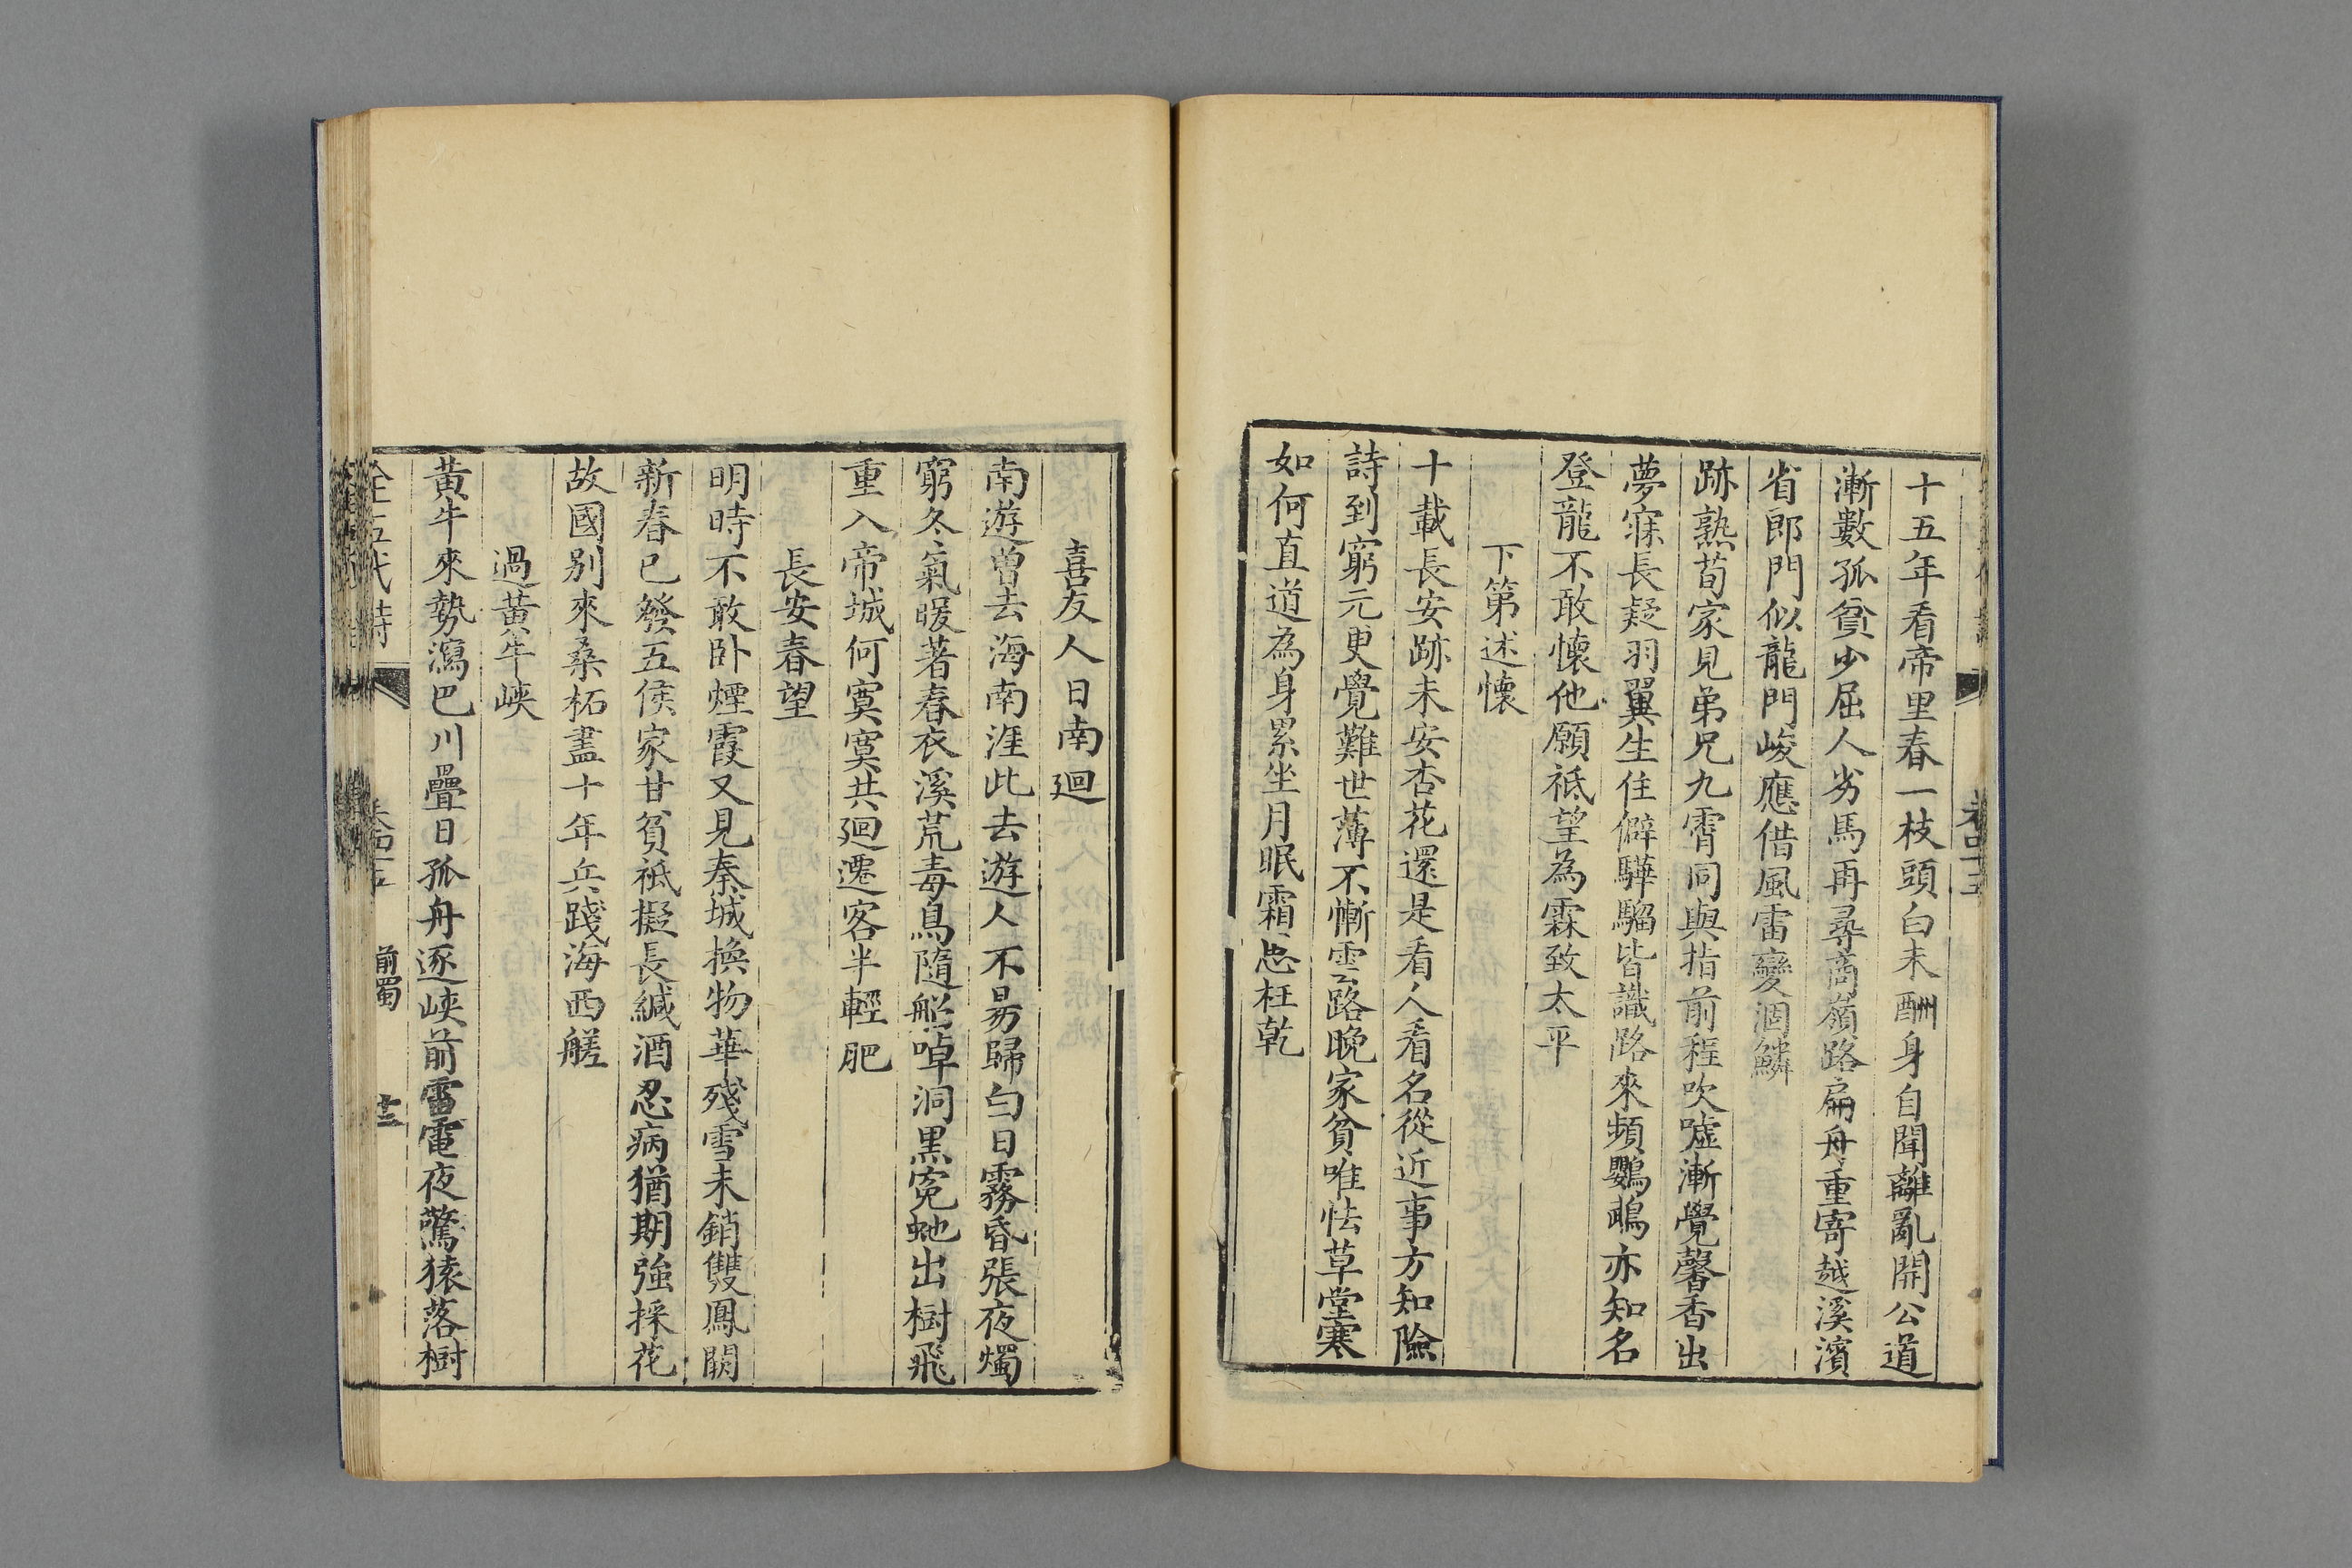 十五年看帝里春一枝頭白未酬身自聞離亂開公道
漸數孤貧少屈人劣馬再尋商嶺路扁舟重寄越溪濱
省郎門似龍門峻應借風雷變涸鱗
跡熟荀家見弟兄九霄同與指前程吹噓漸覺馨香出
夢寐長疑羽翼生住僻驊騮皆識路來頻鸚鵡亦知名
登龍不敢懷他願祇望為霖致太平
下第述懷
十載長安跡未安杏花還是看人看名從近事方知險
詩到窮元更覺難世薄不慚雲路晚家貧唯怯草堂寒
如何直道為身累坐月眠霜思枉乾
喜友人日南迴
南遊曾去海南涯此去遊人不易歸白日霧昏張夜燭
窮冬氣暖著春衣溪荒毒鳥隨船啅洞黑冤虵出樹飛
重入帝城何寞寞共迴遷客半輕肥
長安春望
明時不敢卧煙霞又見秦城換物華殘雪未銷雙鳳闕
新春已發五侯家甘貧祇擬長緘酒忍病猶期強採花
故國别來桑柘盡十年兵踐海西艖
過黄牛峽
黃牛來勢瀉巴川疊日孤舟逐峽前雷電夜驚猿落樹
全五代詩 卷四十五 前蜀 十三